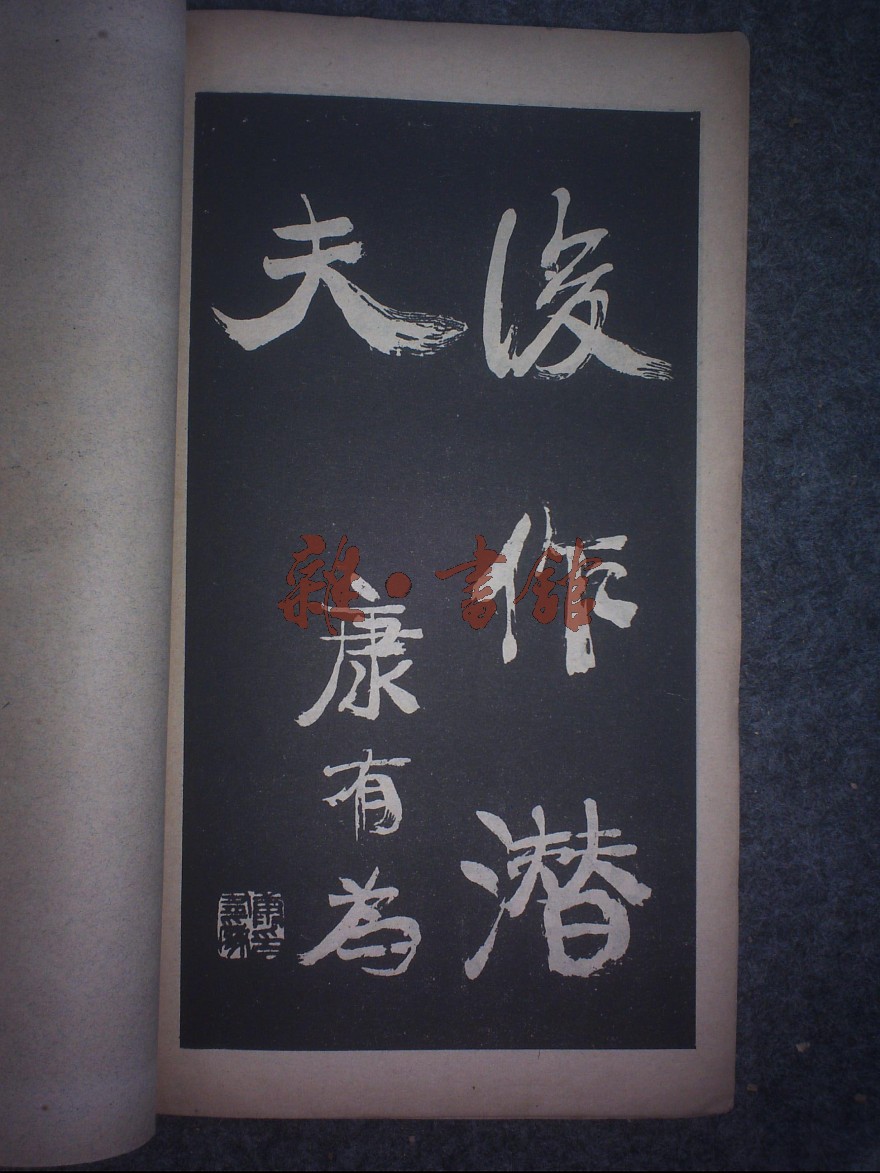 後作潜
夫
康有為
雜·書館